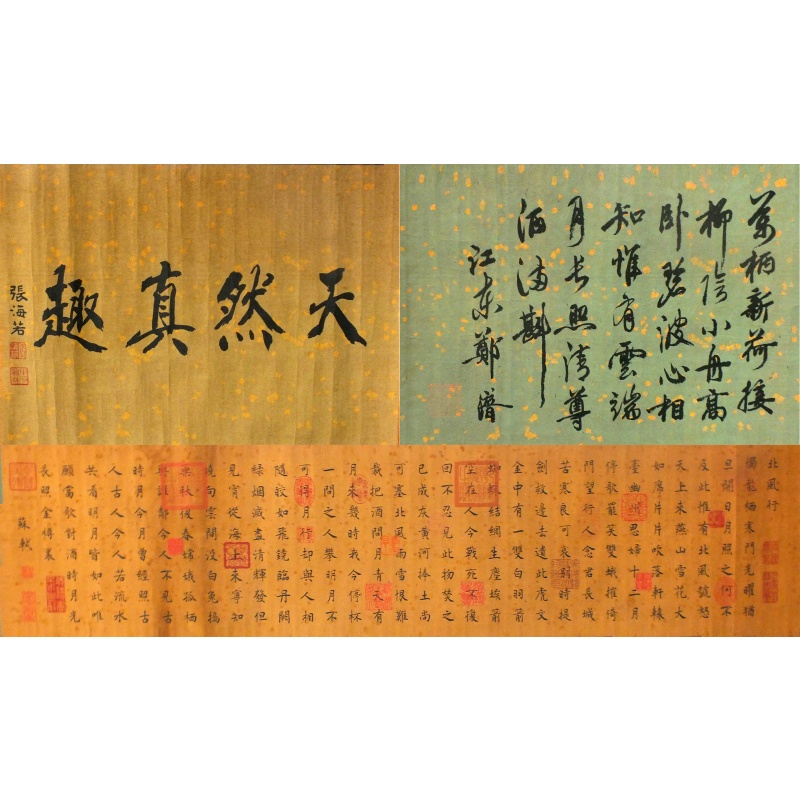 天然真趣
張海若
萬柄新荷接
柳陰小舟高
卧碧波心相
知惟有雲端
月長照清尊
酒滿斟
江東鄭濟
北風行
燭龍栖寒門光曜猶
旦開日月照之何不
及此惟有北風號怒
天上來燕山雪花大
如席片片吹落軒轅
臺幽州思婦十二月
停歌罷笑雙蛾摧倚
門望行人念君長城
苦寒良可哀別時提
劍救邊去遺此虎文
金中有一雙白羽箭
蜘蛛結網生塵埃箭
空在人今戰死不後
回不忍見此物焚之
已成灰黃河捧土尚
可塞北風雨雪恨難
裁把酒問月青天有
月來幾時我今停杯
一問之人攀明月不
可得月行却與人相
隨皎如飛鏡臨丹闕
緑烟滅盡清輝發但
見宵從海上來寧知
曉向雲間沒白兔搗
藥秋後春嫦娥孤栖
與誰鄰今人不見古
時月今月曾經照古
人古人今人若流水
共看明月皆如此唯
願當歌對酒時月光
長照金樽裏
蘇軾